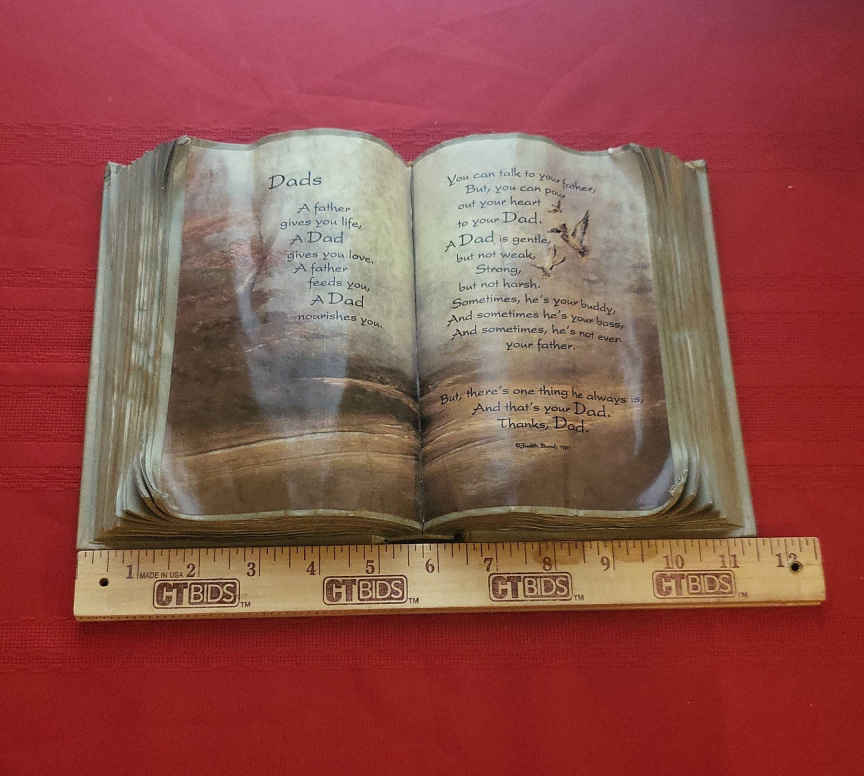 Dads
A father
gives you life,
A Dad
gives you love.
A father
feeds you,
A Dad
nourishes you.
You can talk to your father,
But, you can pour
out your heart
to your Dad.
A Dad is gentle,
but not weak,
Strong,
but not harsh.
Sometimes, he's your buddy,
And sometimes he's your boss,
And sometimes, he's not even
your father.
But, there's one thing he always is,
And that's your Dad.
Thanks, Dad.
©Judith Bond,
1 2 3 4 5 6 7 8 9 10 11 12
MADE IN USA
CTBIDS™ CTBIDS™ CTBIDS™ CTBIDS™